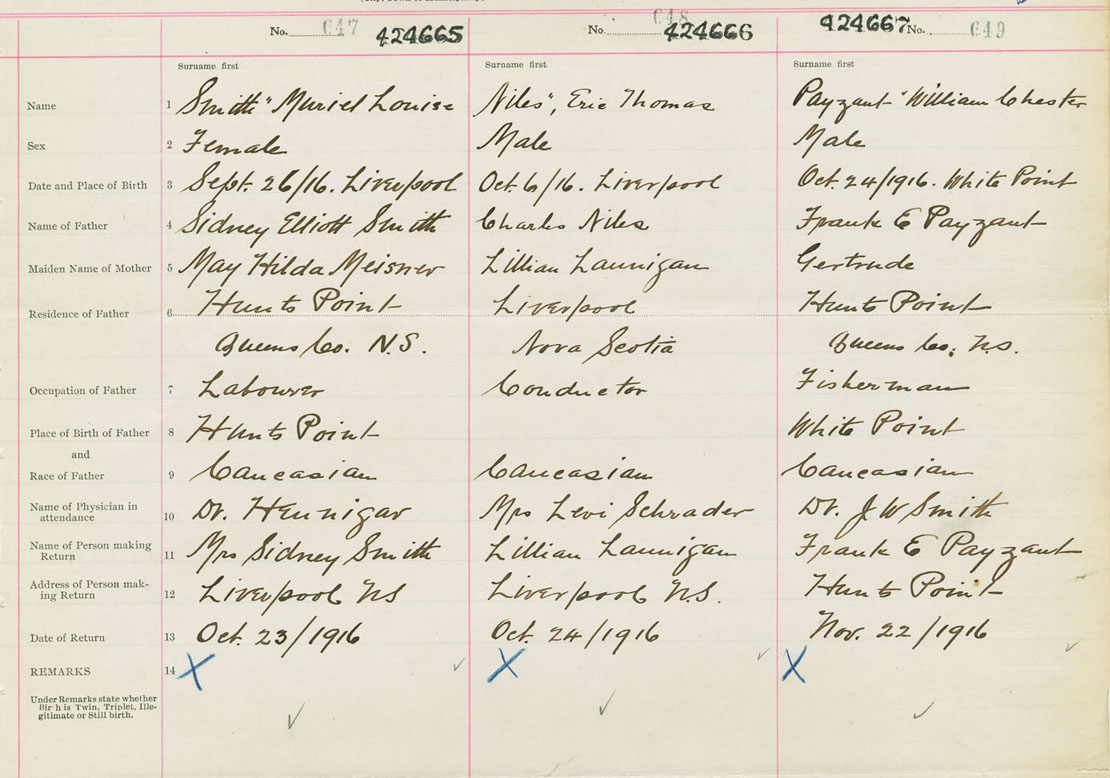 No. 647 424665
No. 648 424666
424667 No. 649
Surname first
Surname first
Surname first
Name 1 Smith" Muriel Louise
Niles", Eric Thomas
Payzant "William Chester
Sex 2 Female
Male
Male
Date and Place of Birth 3 Sept. 26/16. Liverpool
Oct. 6/16. Liverpool
Oct. 24/1916. White Point
Name of Father 4 Sidney Elliott Smith
Charles Niles
Frank E Payzant
Maiden Name of Mother 5 May Hilda Meisner
Lillian Launigan
Gertrude
Residence of Father 6 Hunts Point
Liverpool
Hunts Point
Queens Co. N.S.
Nova Scotia
Queens Co. N.S.
Occupation of Father 7 Labourer
Conductor
Fisherman
Place of Birth of Father 8 Hunts Point
White Point
and
Race of Father 9 Caucasian
Caucasian
Caucasian
Name of Physician in
attendance 10 Dr. Hennigar
Mrs Levi Schrader
Dr. J W Smith
Name of Person making
Return 11 Mrs Sidney Smith
Lillian Launigan
Frank E Payzant
Address of Person mak-
ing Return 12 Liverpool NS
Liverpool N.S.
Hunts Point
Date of Return 13 Oct. 23/1916
Oct. 24/1916
Nov. 22/1916
REMARKS 14 X
X
X
Under Remarks state whether
Birth is Twin, Triplet, Ille-
gitimate or Still birth.